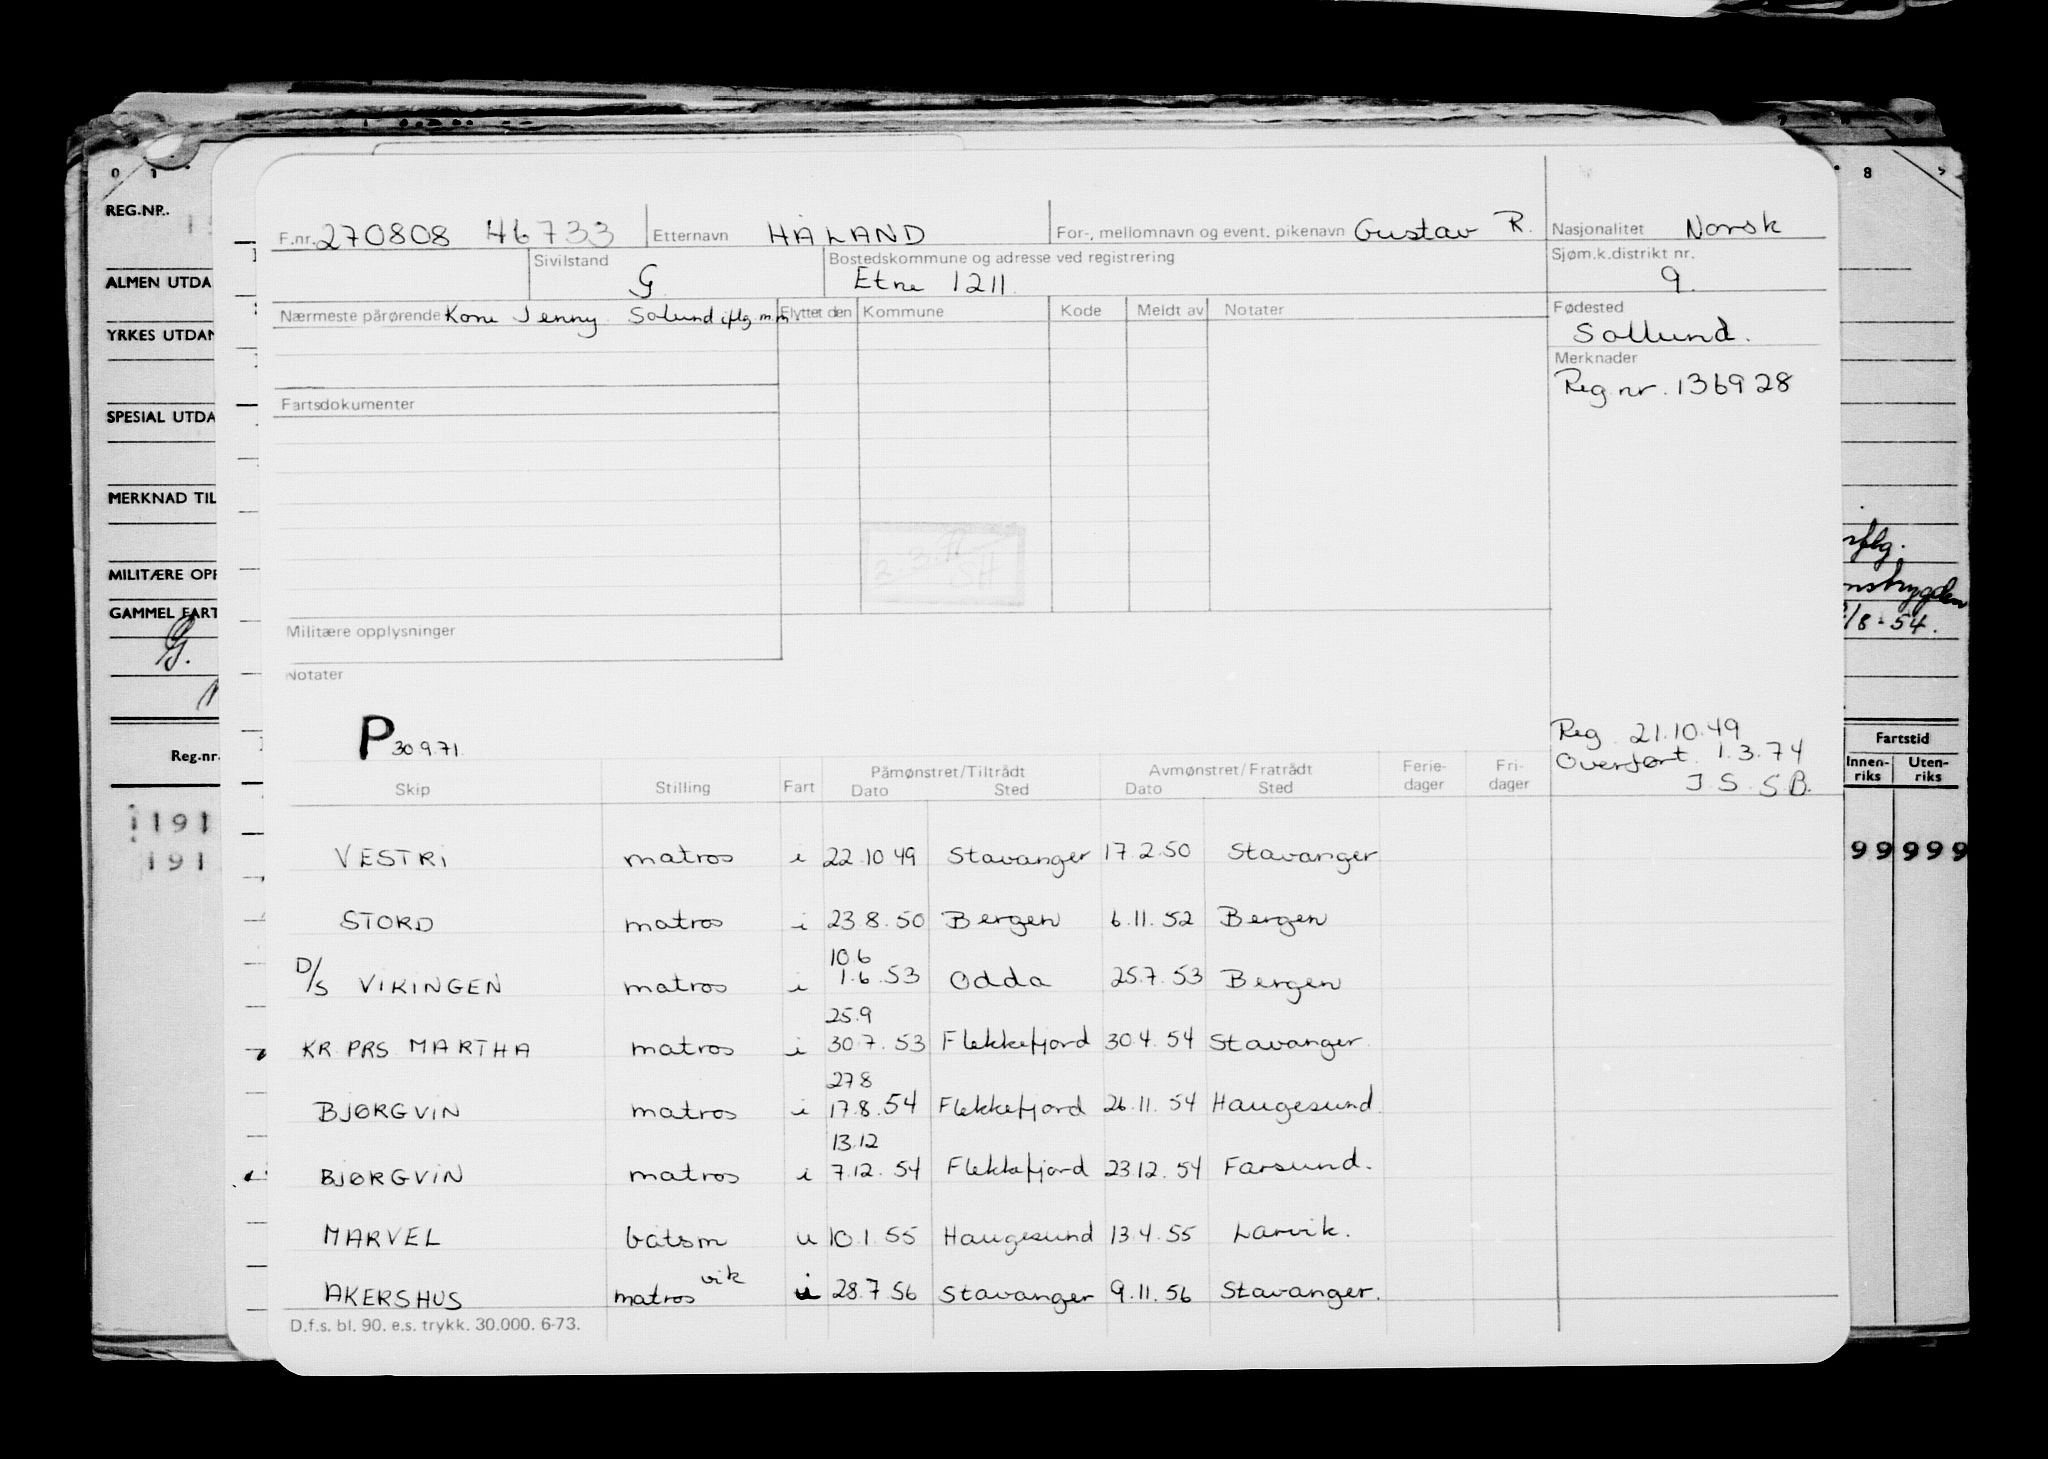 REG.NR.
ALMEN UTDA
YRKES UTDAN
SPESIAL UTDA
MERKNAD TIL
MILITÆRE OPP
GAMMEL FART
G.
Reg.nr.
191
191
F.nr. 270808 46733 Etternavn HÅLAND For-, mellomnavn og event. pikenavn Gustav R. Nasjonalitet Norsk
Sivilstand G Bostedskommune og adresse ved registrering Etne 1211 Sjøm.k.distrikt nr. 9.
Nærmeste pårørende Kone Jenny Solund iflg. m.m. Flyttet den Kommune Kode Meldt av Notater Fødested
Sollund.
Merknader
Reg nr. 136928
Fartsdokumenter
3.3.71
SH
Militære opplysninger
Notater
P 30.9.71.
Reg. 21.10.49
Overført 1.3.74
J.S.S.B.
Skip Stilling Fart Påmønstret/Tiltrådt Dato Sted Avmønstret/Fratrådt Dato Sted Ferie-dager Fri-dager
VESTRI matros i 22.10 49 Stavanger 17.2.50 Stavanger
STORD matros i 23.8.50 Bergen 6.11.52 Bergen
10.6
D/S VIKINGEN matros i 1.6.53 Odda 25.7.53 Bergen
25.9
KR PRS MARTHA matros i 30.7.53 Flekkefjord 30.4.54 Stavanger.
27.8
BJØRGVIN matros i 17.8.54 Flekkefjord 26.11.54 Haugesund
13.12
BJØRGVIN matros i 7.12.54 Flekkefjord 23.12.54 Farsund.
MARVEL båtsm u 10.1.55 Haugesund 13.4.55 Larvik.
AKERSHUS matros vik i 28.7.56 Stavanger 9.11.56 Stavanger.
D.f.s. bl. 90. e.s. trykk. 30.000. 6-73.
8
iflg.
/8-54.
Fartstid
Innen-riks Uten-riks
99 999